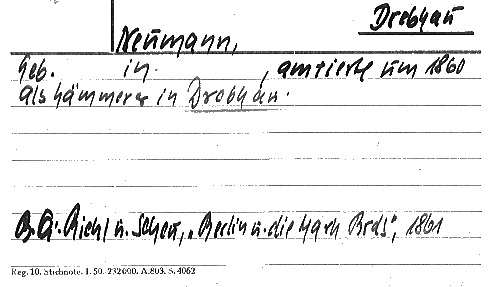 Drebkau
Neumann,
Geb. in , amtierte um 1860
als Kämmerer in Drebkau.
B.G. Riehl u. Scheu, „Berlin u. die Mark Brdb", 1861
Reg. 10. Stichnote. I. 50. 232000. A.803. S. 4062